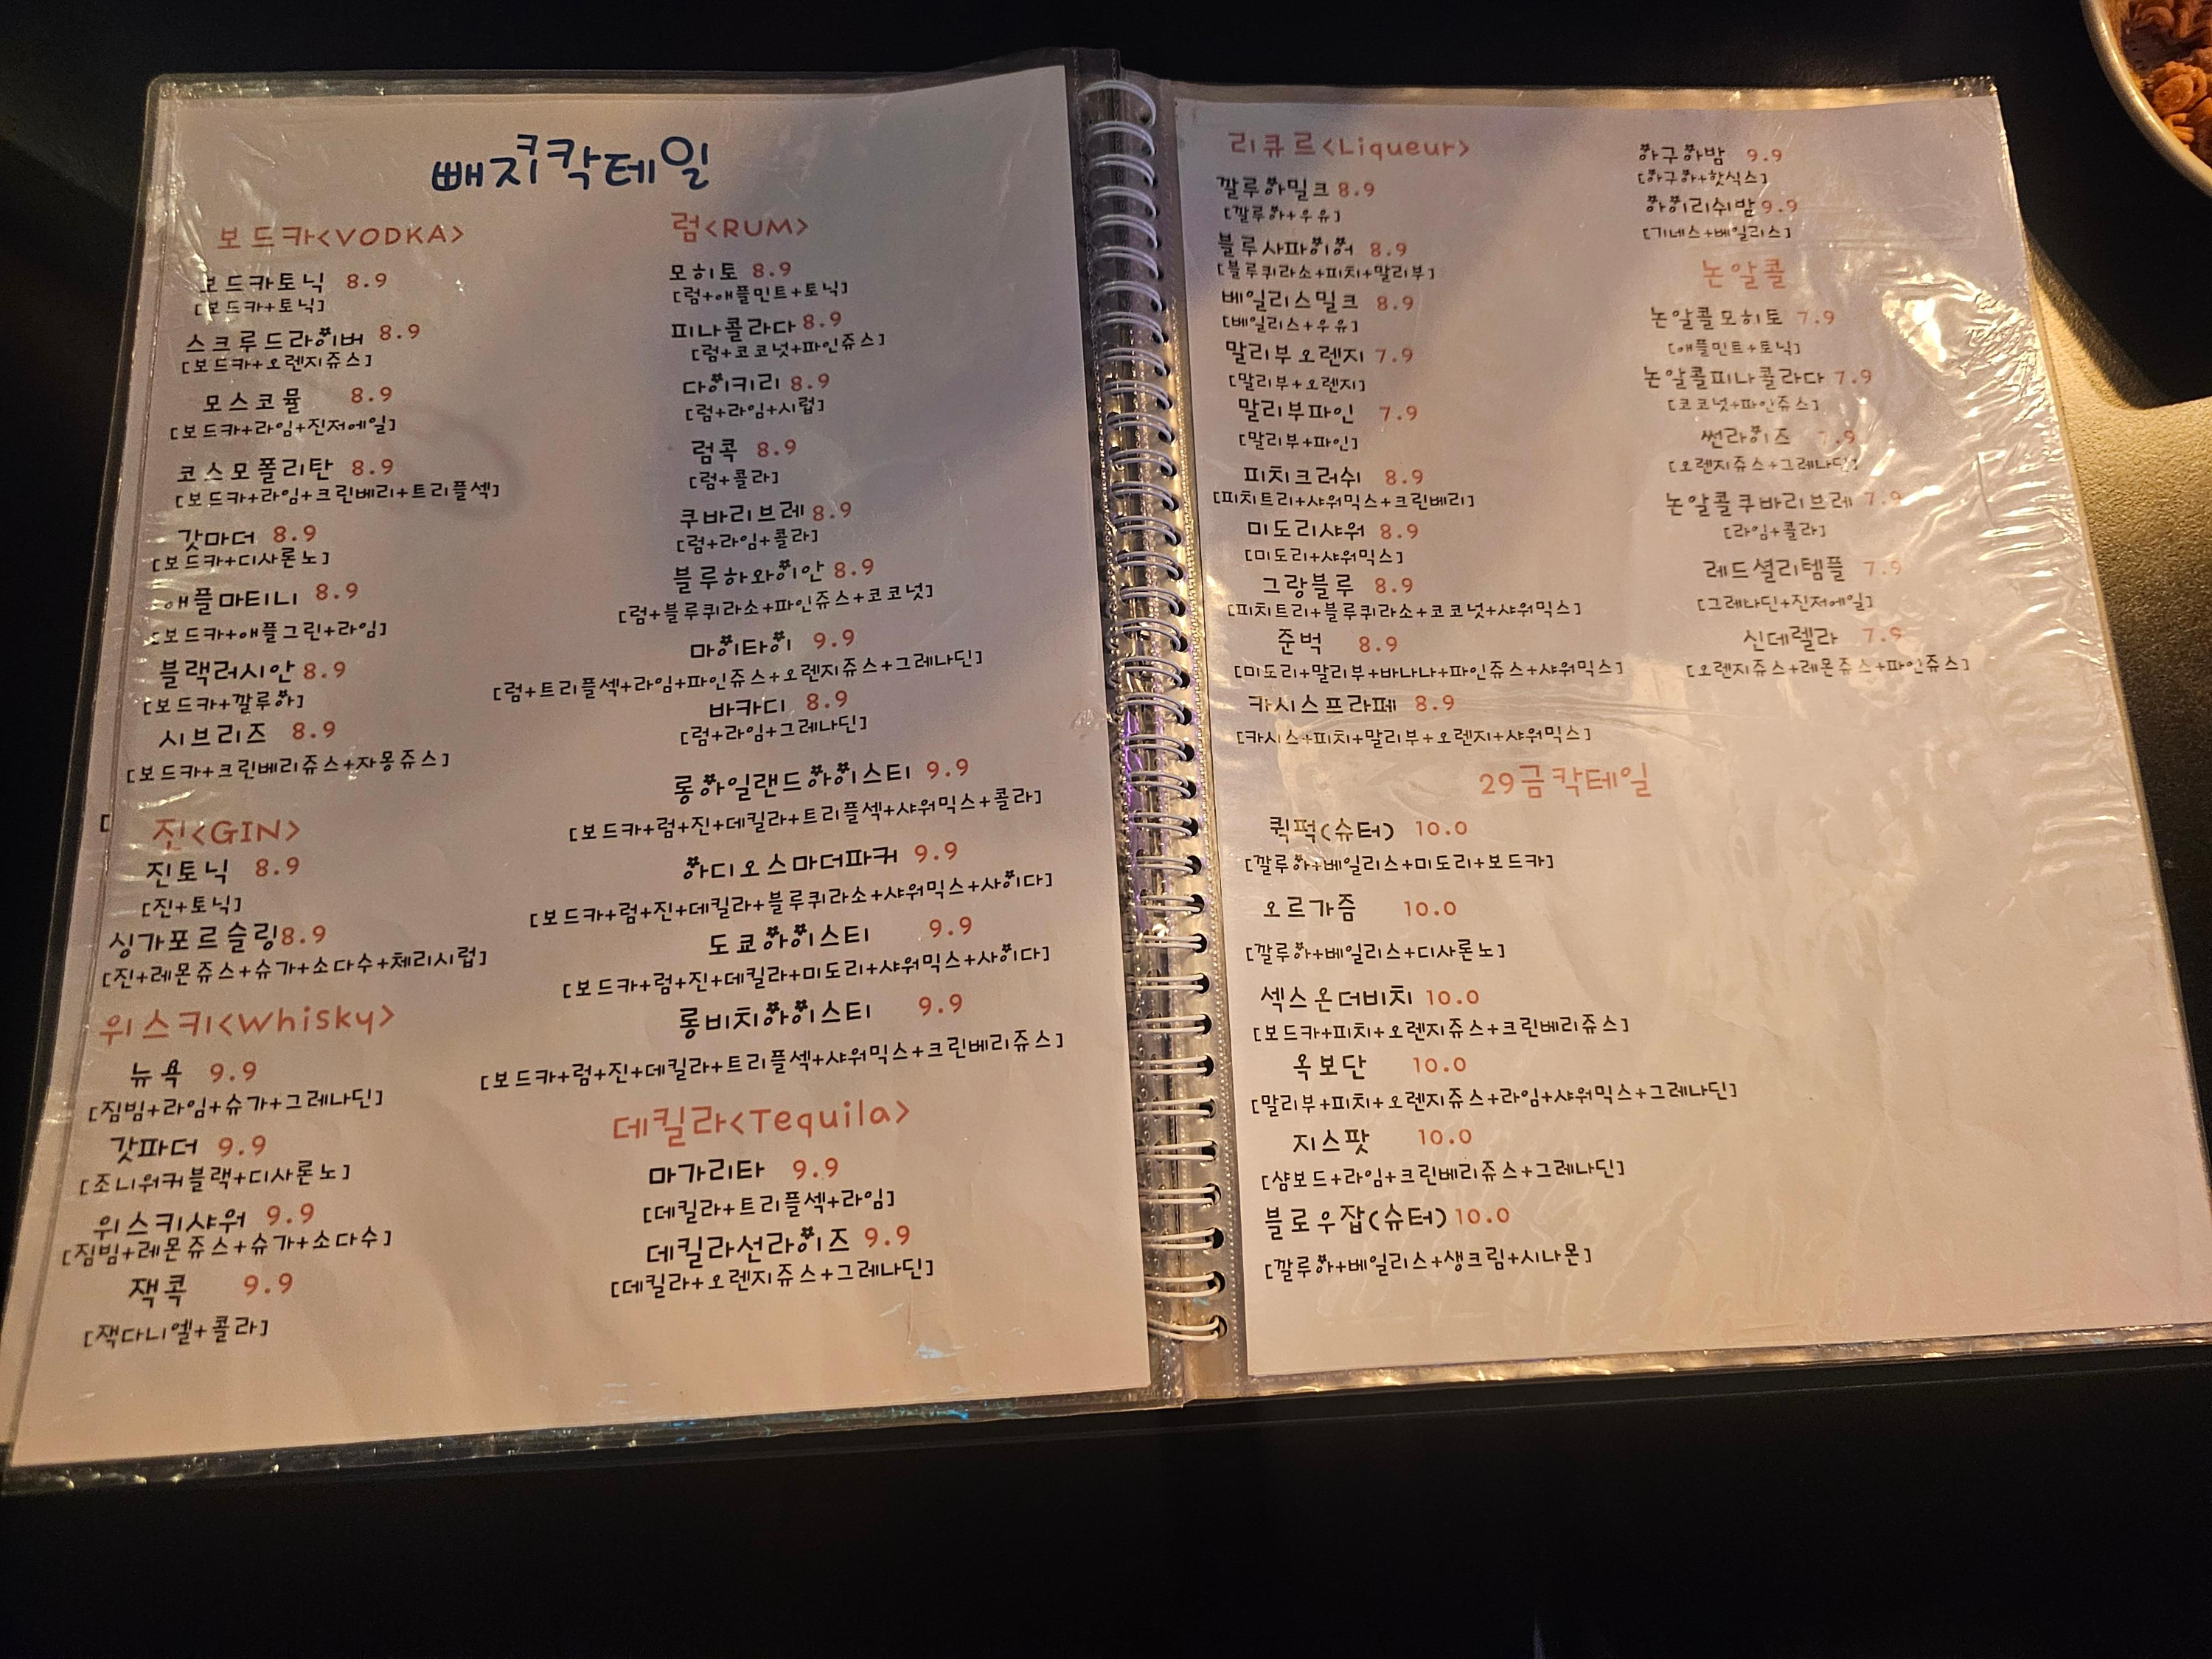 빼지키칵테일
보드카<VODKA>
보드카토닉 8.9
[보드카+토닉]
스크루드라이버 8.9
[보드카+오렌지쥬스]
모스코뮬 8.9
[보드카+라임+진저에일]
코스모폴리탄 8.9
[보드카+라임+크린베리+트리플섹]
갓마더 8.9
[보드카+디사론노]
애플마티니 8.9
[보드카+애플그린+라임]
블랙러시안 8.9
[보드카+깔루아]
시브리즈 8.9
[보드카+크린베리쥬스+자몽쥬스]
진<GIN>
진토닉 8.9
[진+토닉]
싱가포르슬링8.9
[진+레몬쥬스+슈가+소다수+체리시럽]
위스키<Whisky>
뉴욕 9.9
[짐빔+라임+슈가+그레나딘]
갓파더 9.9
[조니워커블랙+디사론노]
위스키샤워 9.9
[짐빔+레몬쥬스+슈가+소다수]
잭콕 9.9
[잭다니엘+콜라]
럼<RUM>
모히토 8.9
[럼+애플민트+토닉]
피나콜라다 8.9
[럼+코코넛+파인쥬스]
다이키리 8.9
[럼+라임+시럽]
럼콕 8.9
[럼+콜라]
쿠바리브레 8.9
[럼+라임+콜라]
블루하와이안 8.9
[럼+블루퀴라소+파인쥬스+코코넛]
마이타이 9.9
[럼+트리플섹+라임+파인쥬스+오렌지쥬스+그레나딘]
바카디 8.9
[럼+라임+그레나딘]
롱아일랜드아이스티 9.9
[보드카+럼+진+데킬라+트리플섹+샤워믹스+콜라]
아디오스마더파커 9.9
[보드카+럼+진+데킬라+블루퀴라소+샤워믹스+사이다]
도쿄아이스티 9.9
[보드카+럼+진+데킬라+미도리+샤워믹스+사이다]
롱비치아이스티 9.9
[보드카+럼+진+데킬라+트리플섹+샤워믹스+크린베리쥬스]
데킬라<Tequila>
마가리타 9.9
[데킬라+트리플섹+라임]
데킬라선라이즈 9.9
[데킬라+오렌지쥬스+그레나딘]
리큐르<Liqueur>
깔루아밀크 8.9
[깔루아+우유]
블루사파이어 8.9
[블루퀴라소+피치+말리부]
베일리스밀크 8.9
[베일리스+우유]
말리부오렌지 7.9
[말리부+오렌지]
말리부파인 7.9
[말리부+파인]
피치크러쉬 8.9
[피치트리+샤워믹스+크린베리]
미도리샤워 8.9
[미도리+샤워믹스]
그랑블루 8.9
[피치트리+블루퀴라소+코코넛+샤워믹스]
준벅 8.9
[미도리+말리부+바나나+파인쥬스+샤워믹스]
카시스프라페 8.9
[카시스+피치+말리부+오렌지+샤워믹스]
29금칵테일
퀵퍽(슈터) 10.0
[깔루아+베일리스+미도리+보드카]
오르가즘 10.0
[깔루아+베일리스+디사론노]
섹스온더비치 10.0
[보드카+피치+오렌지쥬스+크린베리쥬스]
옥보단 10.0
[말리부+피치+오렌지쥬스+라임+샤워믹스+그레나딘]
지스팟 10.0
[샴보드+라임+크린베리쥬스+그레나딘]
블로우잡(슈터) 10.0
[깔루아+베일리스+생크림+시나몬]
아구아밤 9.9
[아구아+핫식스]
아이리쉬밤 9.9
[기네스+베일리스]
논알콜
논알콜모히토 7.9
[애플민트+토닉]
논알콜피나콜라다 7.9
[코코넛+파인쥬스]
썬라이즈 7.9
[오렌지쥬스+그레나딘]
논알콜쿠바리브레 7.9
[라임+콜라]
레드셜리템플 7.9
[그레나딘+진저에일]
신데렐라 7.9
[오렌지쥬스+레몬쥬스+파인쥬스]